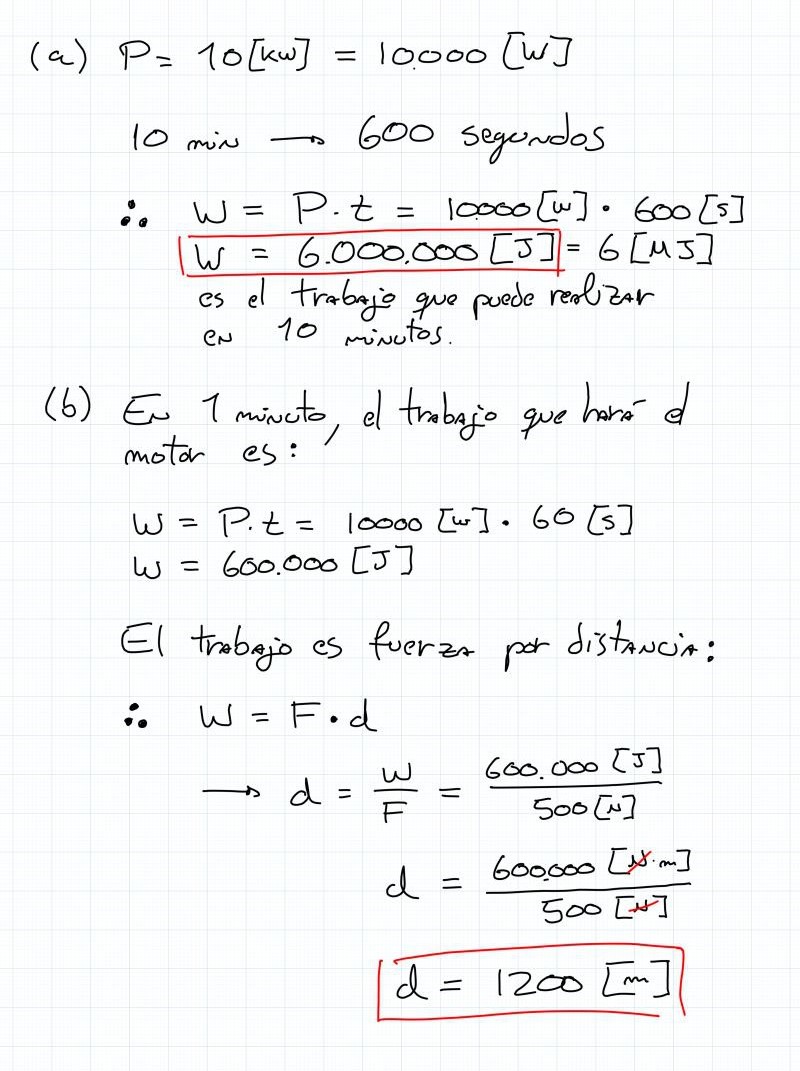 (a) P = 10 [kW] = 10.000 [W]
10 min → 600 segundos
∴ W = P.t = 10.000 [W] · 600 [s]
W = 6.000.000 [J] = 6 [MJ]
es el trabajo que puede realizar
en 10 minutos.
(b) En 1 minuto, el trabajo que hará el
motor es:
W = P.t = 10000 [W] · 60 [s]
W = 600.000 [J]
El trabajo es fuerza por distancia:
∴ W = F · d
→ d = W/F = 600.000 [J] / 500 [N]
d = 600.000 [N·m] / 500 [N]
d = 1200 [m]